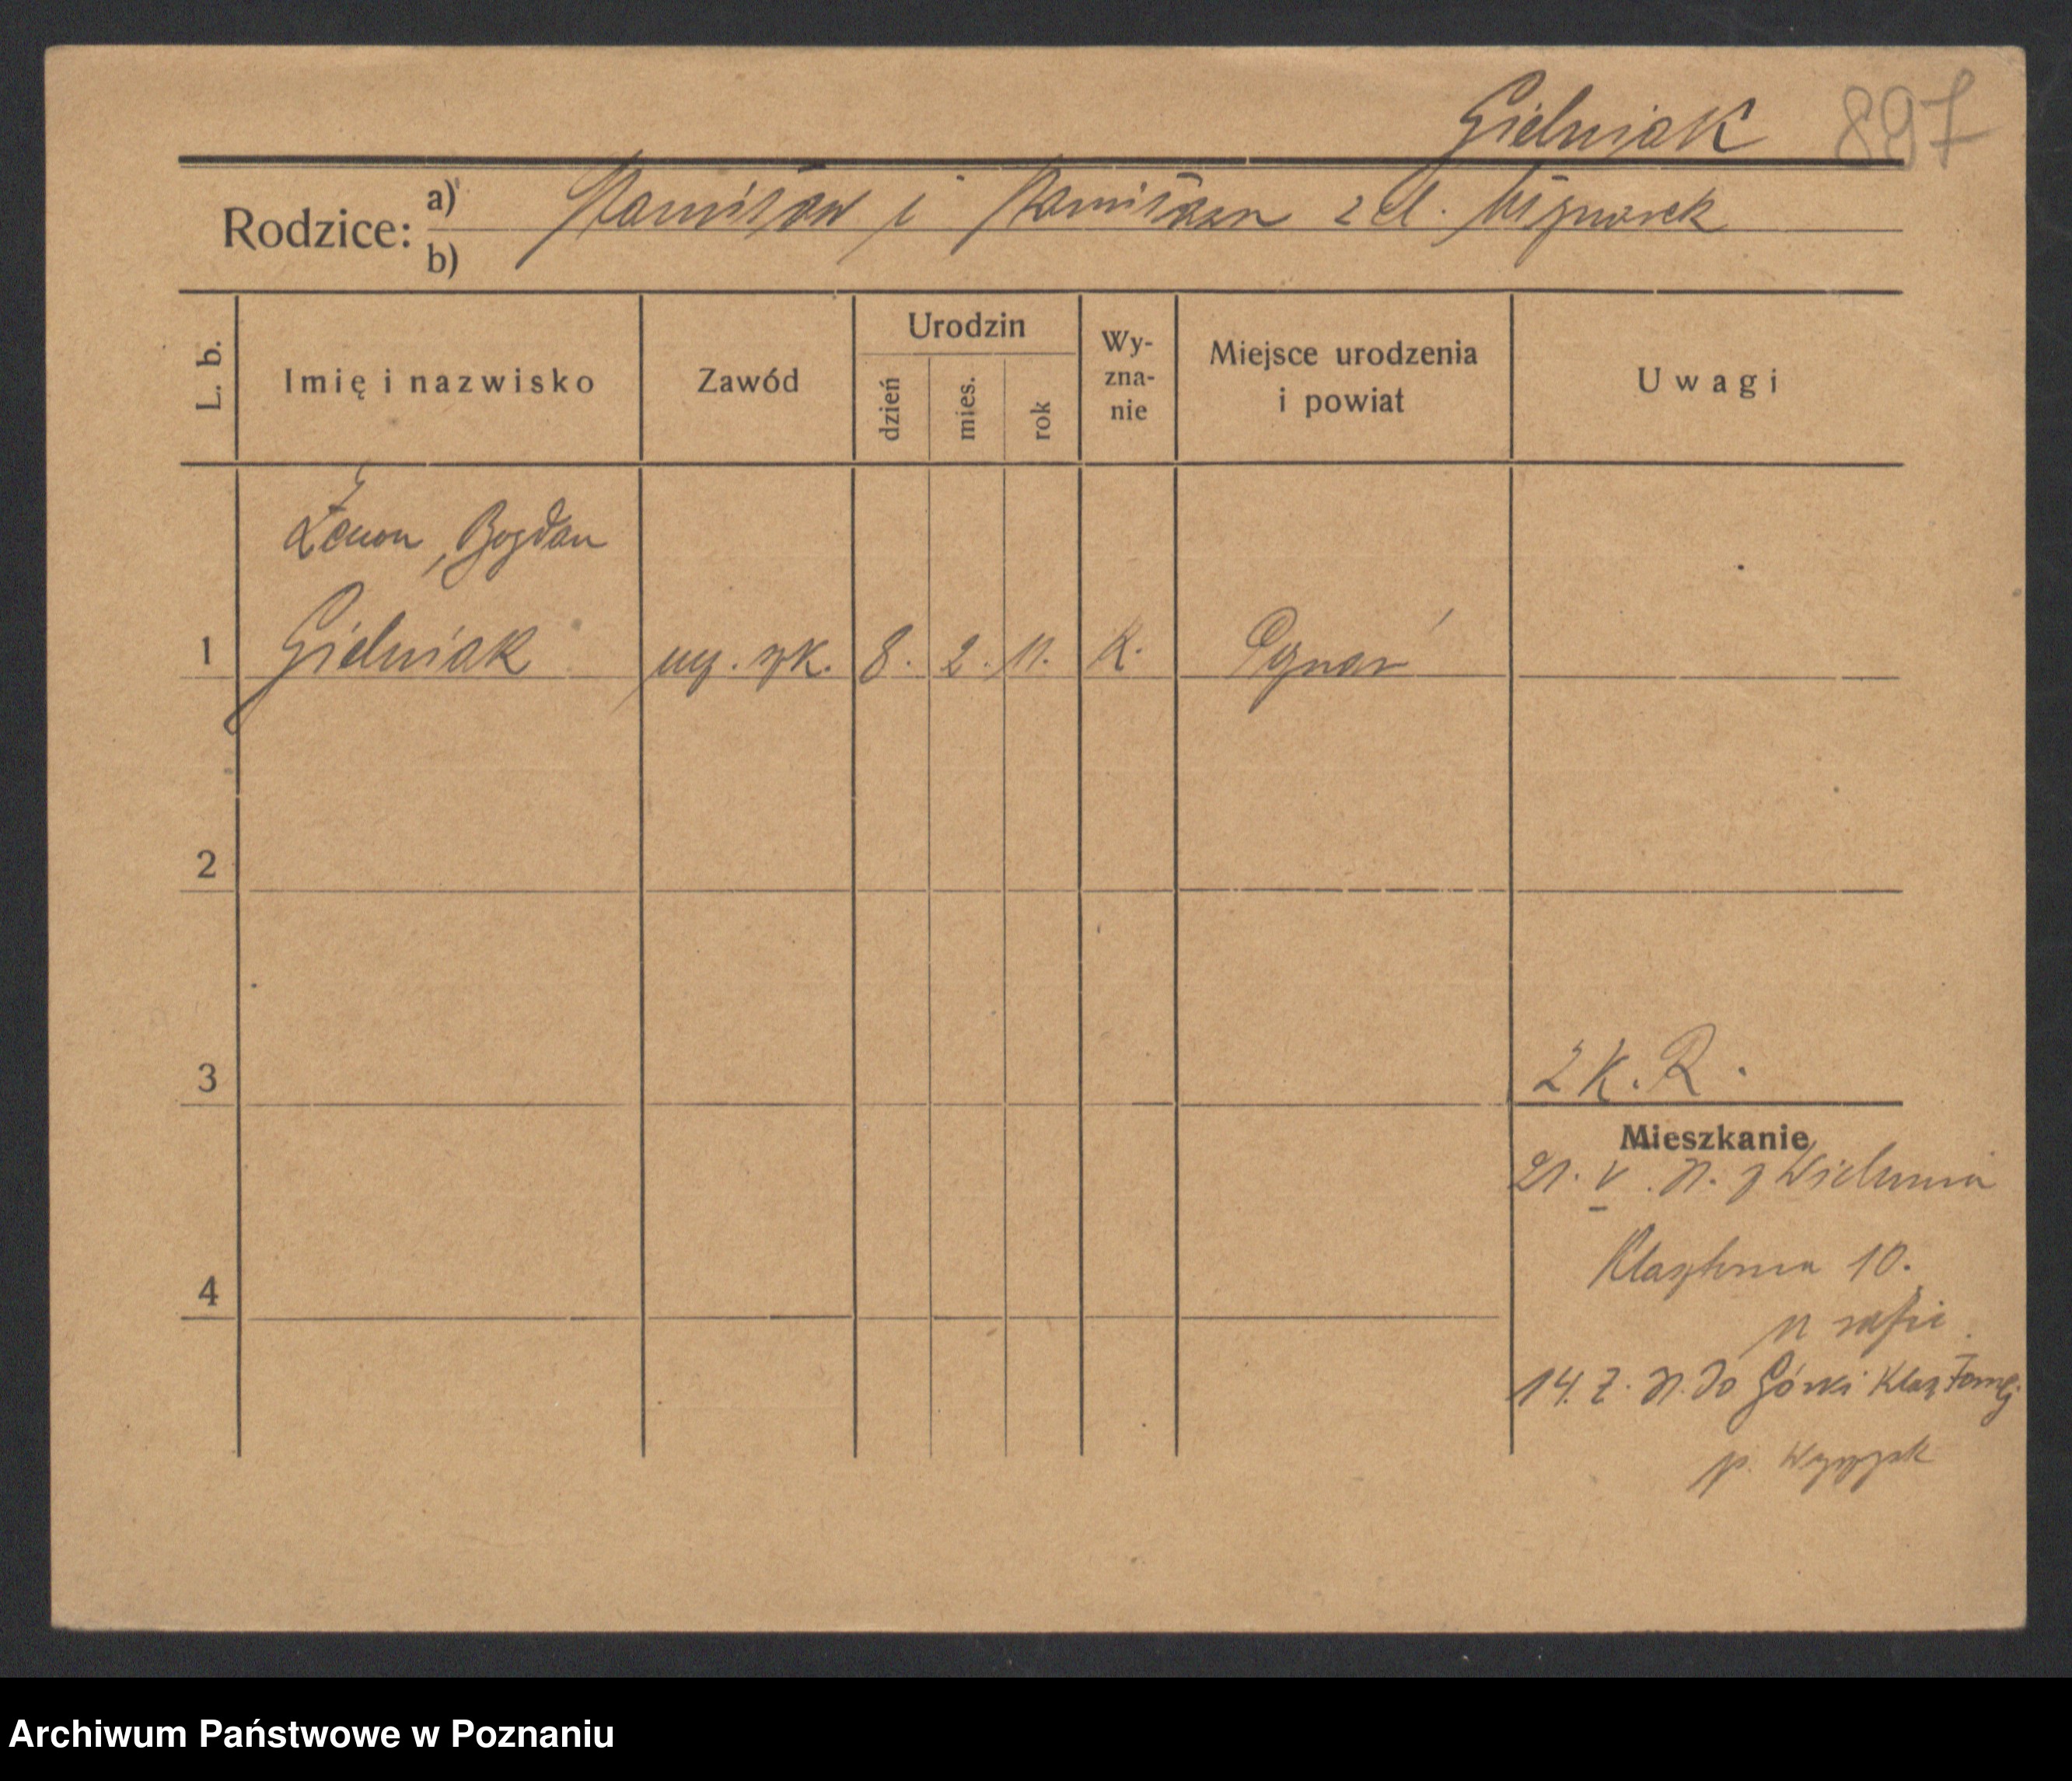 Gielniak 897
Rodzice: a) Stanisław i Stanisława z d.
b)
L. b.
Imię i nazwisko
Zawód
Urodzin
dzień
mies.
rok
Wy-
zna-
nie
Miejsce urodzenia
i powiat
Uwagi
Zenon, Bogdan
1 Gielniak ucz. szk. 8. 2. 11. K. Poznań
2
3 2 K. R.
Mieszkanie
21. V. 11. z Wielunia
Klasztorna 10.
14. 7. 11. do Górki Klasztornej
p. Wyrzysk
4
Archiwum Państwowe w Poznaniu